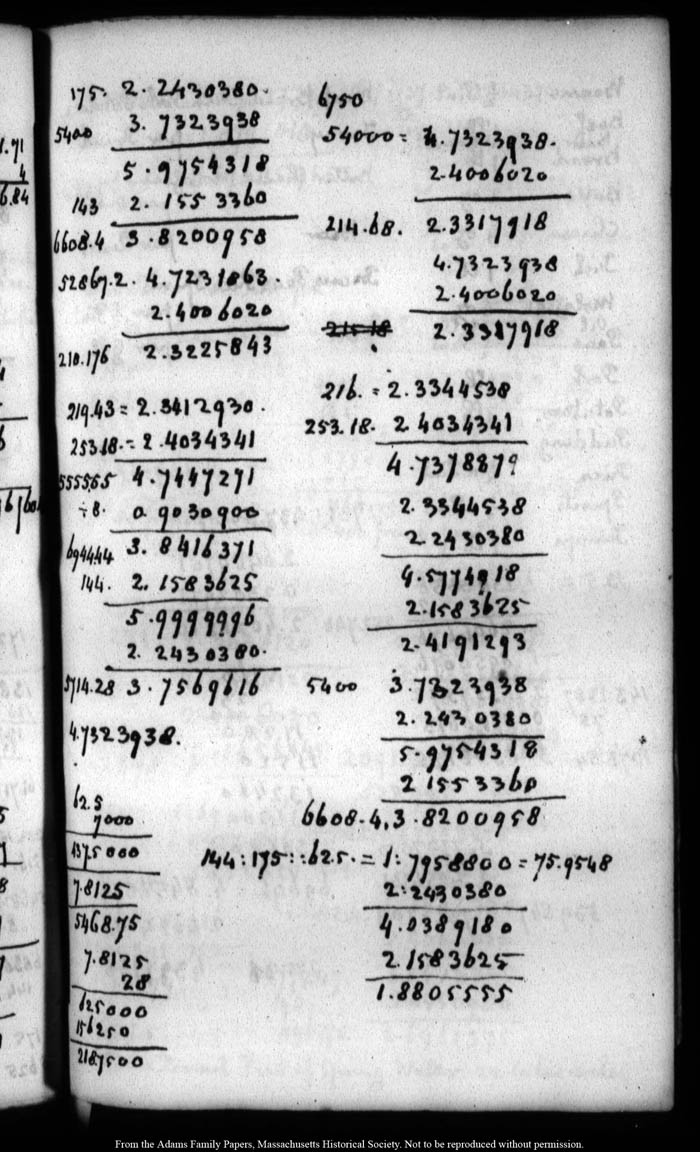 1.71
4
6.84
175. 2.2430380.
5400 3.7323938
5.9754318
143 2.1553360
6608.4 3.8200958
52867.2. 4.7231863.
2.4006020
210.176 2.3225843
219.43 = 2.3412930.
253.18. = 2.4034341
55556.5 4.7447271
÷8. 0.9030900
6944.44 3.8416371
144. 2.1583625
5.9999996
2.2430380.
5714.28 3.7569616
4.7323938.
62.5
7000
4375000
7.8125
5468.75
7.8125
28
625000
156250
2187500
6750
54000 = 4.7323938.
2.4006020
214.68. 2.3317918
4.7323938
2.4006020
2.3317918
216. = 2.3344538
253.18. 2.4034341
4.7378879
2.3344538
2.2430380
4.5774918
2.1583625
2.4191293
5400 3.7323938
2.2430380
5.9754318
2.1553360
6608.4, 3.8200958
144:175::62.5. = 1:7958800 = 75.9548
2:2430380
4.0389180
2.1583625
1.8805555
From the Adams Family Papers, Massachusetts Historical Society. Not to be reproduced without permission.